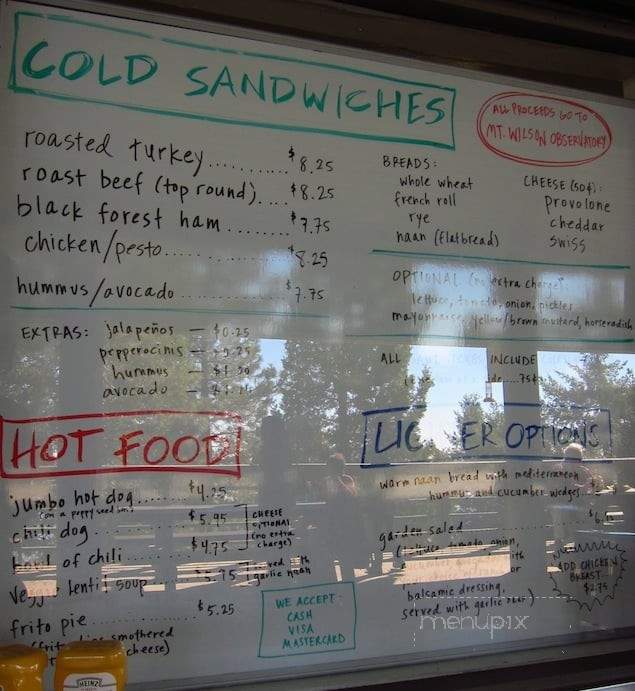 COLD SANDWICHES
ALL PROCEEDS GO TO
MT. WILSON OBSERVATORY
roasted turkey.......... $8.25
roast beef (top round).... $8.25
black forest ham....... $7.75
chicken/pesto............... $8.25
hummus/avocado............. $7.75
BREADS:
whole wheat
french roll
rye
naan (flatbread)
CHEESE (50¢):
provolone
cheddar
swiss
OPTIONAL (no extra charge):
lettuce, tomato, onion, pickles
mayonnaise, yellow/brown mustard, horseradish
EXTRAS: jalapeños — $0.25
pepperocinis —
hummus —
avocado —
ALL INCLUDE
75¢
HOT FOOD
jumbo hot dog........ $4.25
(on a poppy seed bun)
chili dog ............ $5.95
bowl of chili ........ $4.75
CHEESE
OPTIONAL
(no extra
charge)
lentil soup
garlic naan
frito pie ............ $5.25
smothered
cheese)
WE ACCEPT:
CASH
VISA
MASTERCARD
OPTIONS
warm naan bread with mediterranean
hummus and cucumber wedges..
garden salad
(lettuce, tomato, onion,
with
or
balsamic dressing.
served with garlic naan)
ADD CHICKEN
BREAST
$2.75
HEINZ
menupix